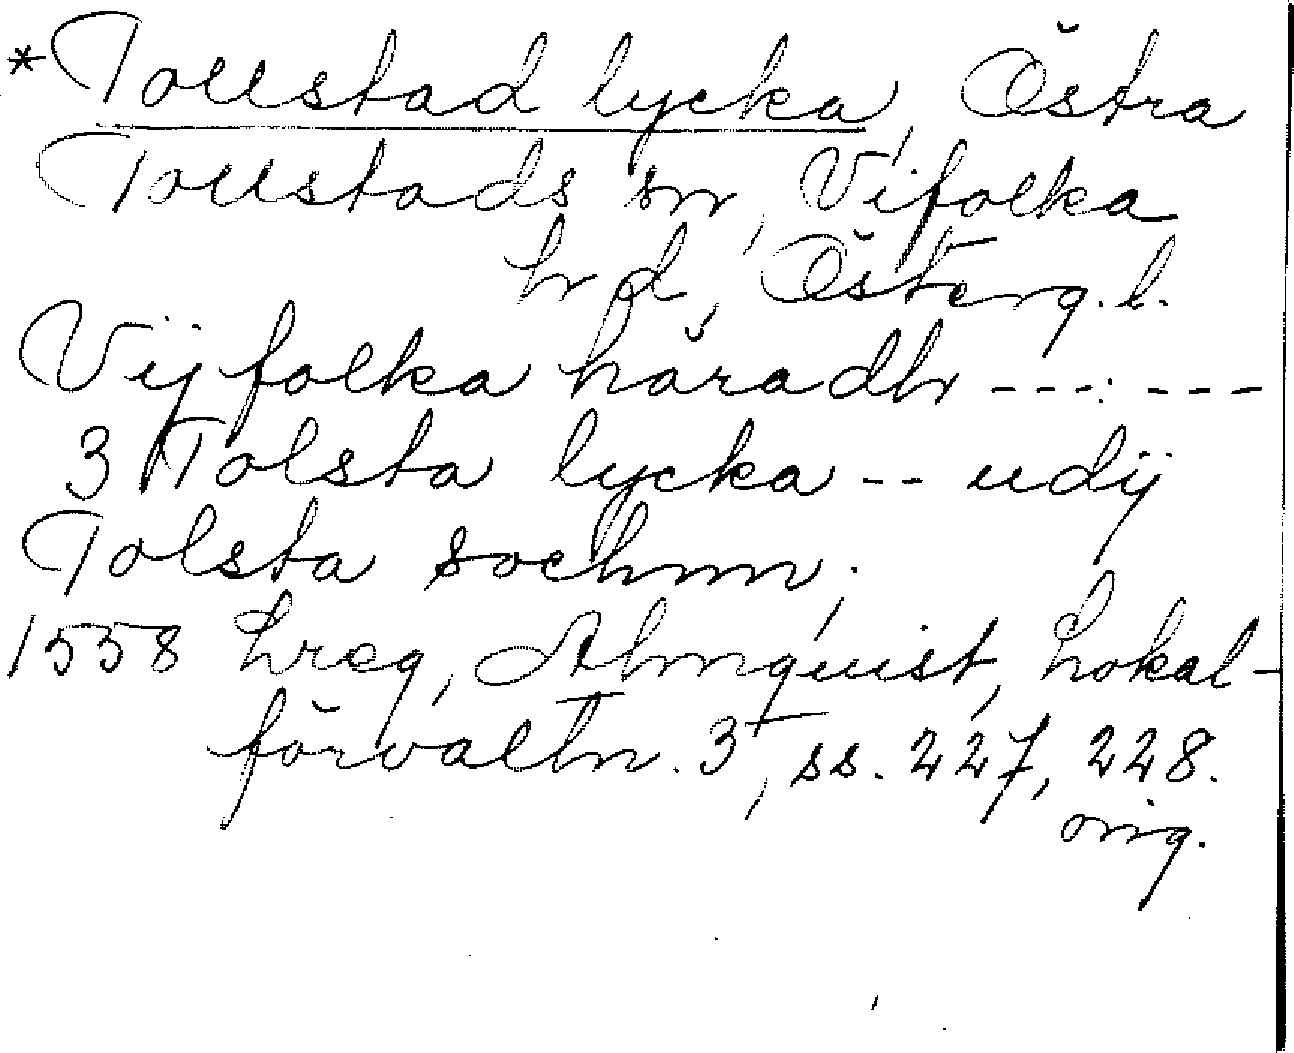 *Tollstad lycka, Östra
Tollstads sn, Vifolka
hrd, Österg. l.
Vijfolka häradh ---:---
3 Tolsta lycka -- udij
Tolsta sochnn;
1558 Lreg, Almquist, Lokal-
förvaltn. 3, ss. 227, 228.
orig.